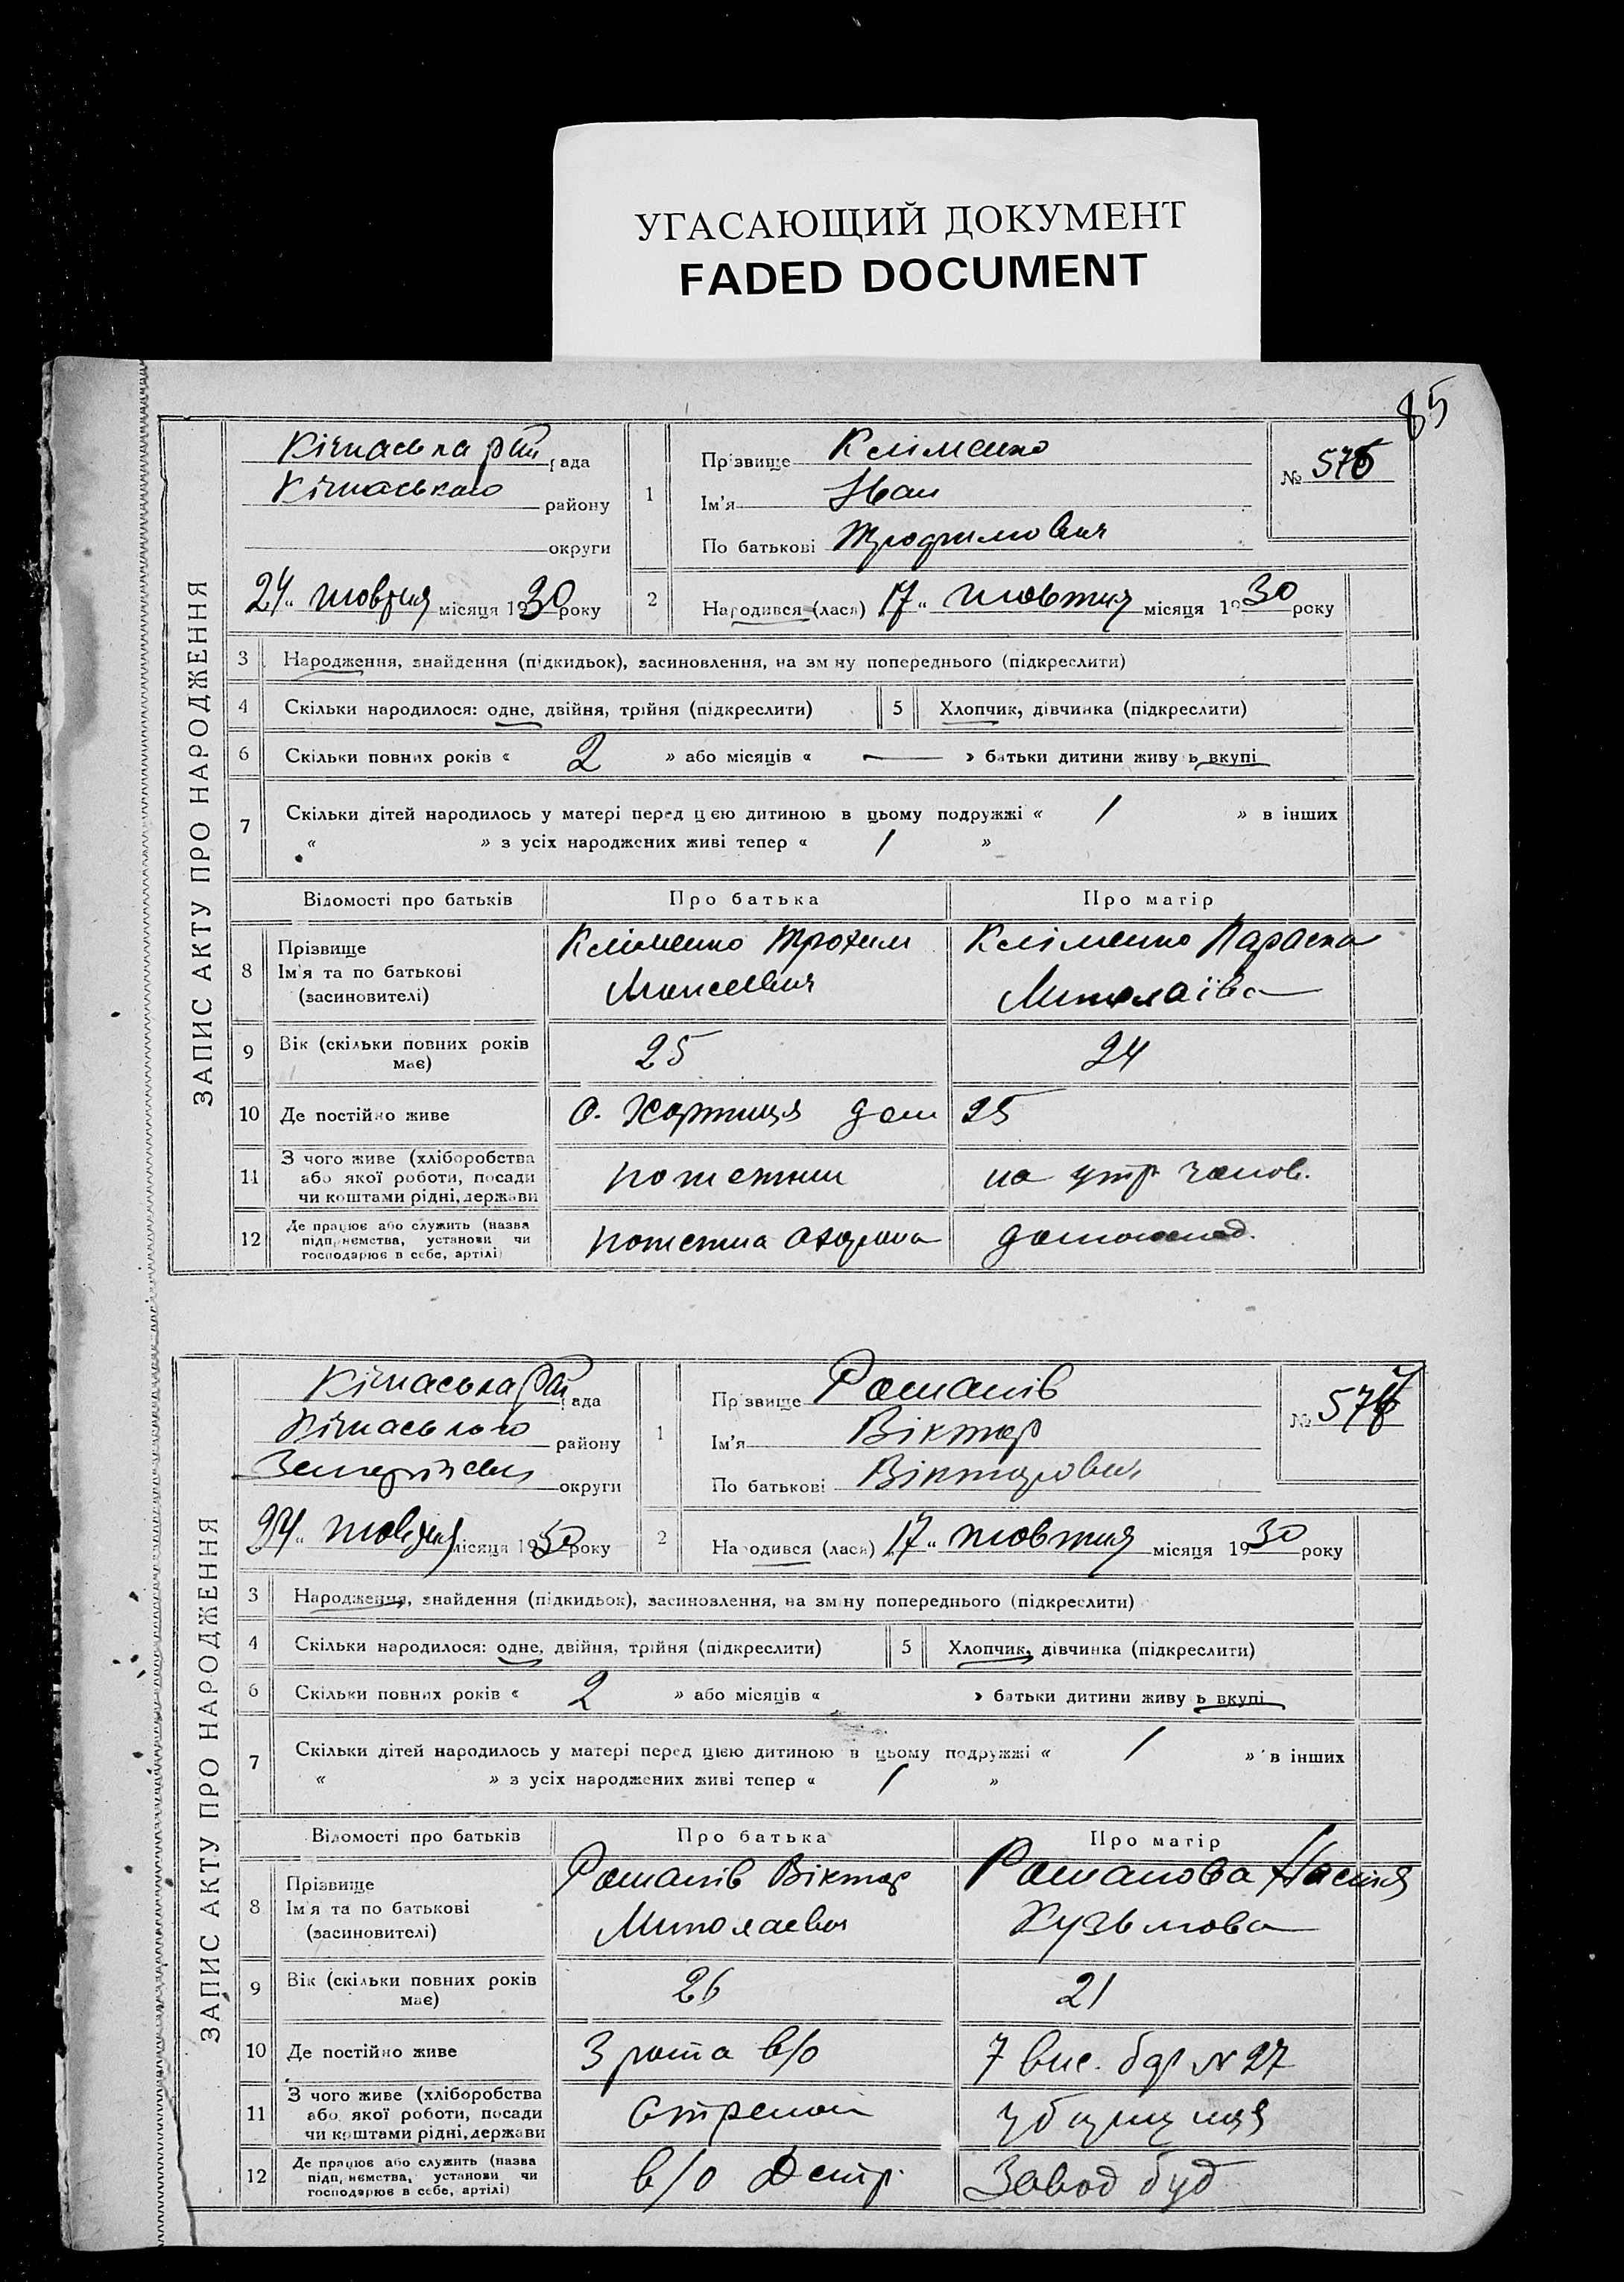 УГАСАЮЩИЙ ДОКУМЕНТ
FADED DOCUMENT
85
ЗАПИС АКТУ ПРО НАРОДЖЕННЯ
Кічкаська рай рада
Кічкаського району
округи
24 „ жовтня місяця 1930 року
1
Прізвище Кліменко
Ім'я Іван
По батькові Трофимович
№ 576
2
Народився (лася) 17 „ жовтня місяця 1930 року
3 Народження, знайдення (підкидьок), засиновлення, на зміну попереднього (підкреслити)
4 Скільки народилося: одне, двійня, трійня (підкреслити) 5 Хлопчик, дівчинка (підкреслити)
6 Скільки повних років « 2 » або місяців « — » батьки дитини живуть вкупі
7 Скільки дітей народилось у матері перед цією дитиною в цьому подружжі « 1 » в інших
« » з усіх народжених живі тепер « 1 »
Відомості про батьків Про батька Про матір
8 Прізвище
Ім'я та по батькові
(засновителі)
Кліменко Трохим
Моисеевич
Кліменко Параска
Миколаївна
9 Вік (скільки повних років
має)
25 24
10 Де постійно живе О. Хортиця дом 25
11 З чого живе (хліборобства
або якої роботи, посади
чи коштами рідні, держави
пожежник на утр. чолов.
12 Де працює або служить (назва
підприємства, установи чи
господарює в себе, артілі)
пожежна охорона домогоспод.
ЗАПИС АКТУ ПРО НАРОДЖЕННЯ
Кічкаська рай рада
Кічкаського району
округи
24 „ жовтня місяця 1930 року
1
Прізвище Романів
Ім'я Віктор
По батькові Вікторович
№ 577
2
Народився (лася) 17 „ жовтня місяця 1930 року
3 Народження, знайдення (підкидьок), засиновлення, на зміну попереднього (підкреслити)
4 Скільки народилося: одне, двійня, трійня (підкреслити) 5 Хлопчик, дівчинка (підкреслити)
6 Скільки повних років « 2 » або місяців « » батьки дитини живуть вкупі
7 Скільки дітей народилось у матері перед цією дитиною в цьому подружжі « 1 » в інших
« » з усіх народжених живі тепер « 1 »
Відомості про батьків Про батька Про матір
8 Прізвище
Ім'я та по батькові
(засиновителі)
Романів Віктор
Миколаевич
Романова Настя
Кузьмова
9 Вік (скільки повних років
має)
26 21
10 Де постійно живе 3 рота в/о 7 вис. бар №27
11 З чого живе (хліборобства
або якої роботи, посади
чи коштами рідні, держави
стрелок
12 Де працює або служить (назва
підприємства, установи чи
господарює в себе, артілі)
в/о Дстр. Завод буд